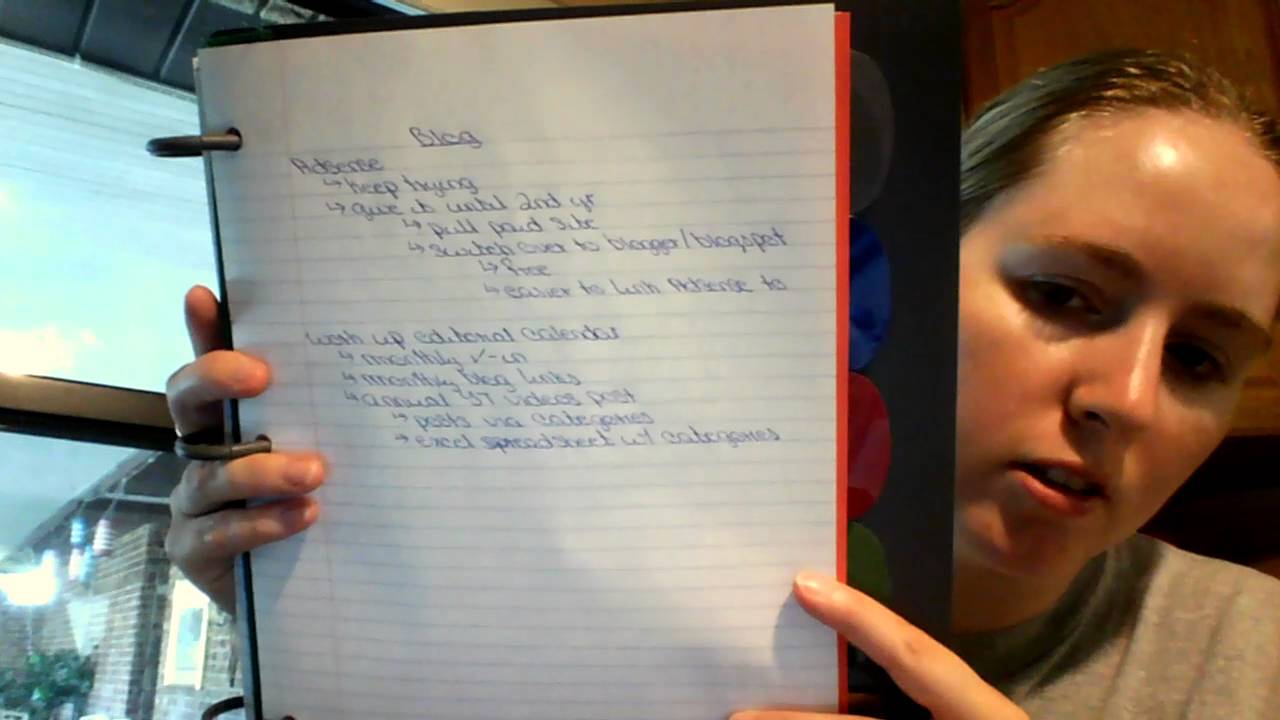 Blog
AdSense
↳ keep trying
↳ give it until 2nd yr
↳ pull paid site
↳ switch over to blogger/blogspot
↳ free
↳ easier to link AdSense to
work up editorial calendar
↳ monthly ✓-in
↳ monthly blog links
↳ annual YT videos post
↳ posts via categories
↳ excel spreadsheet w/ categories